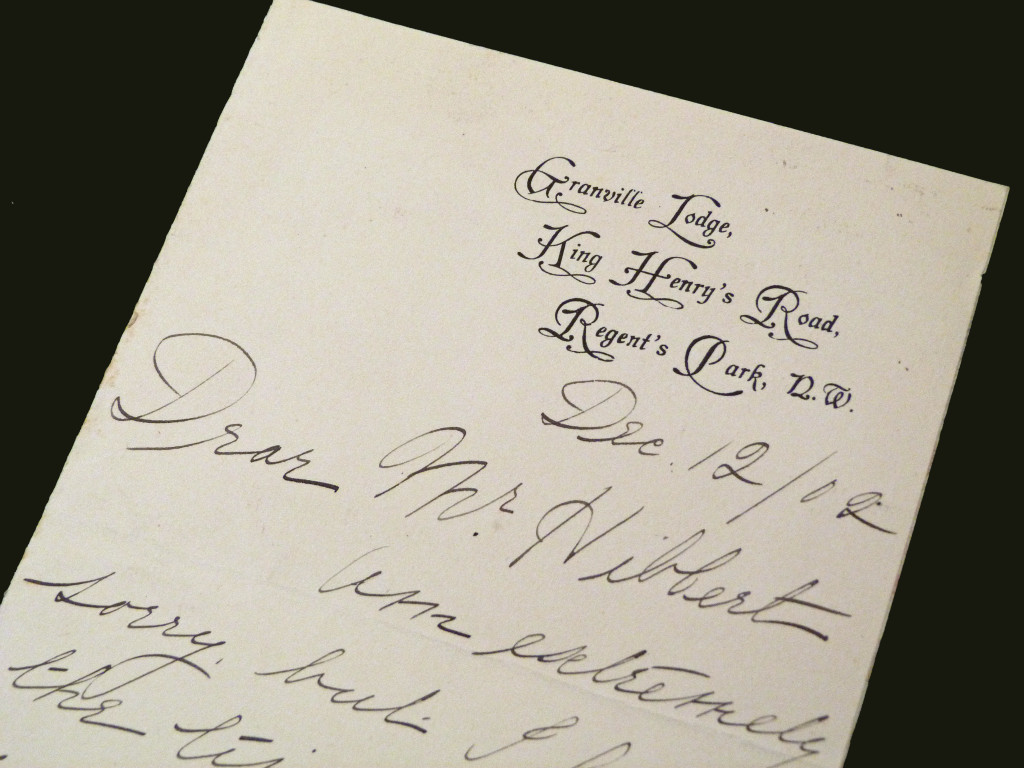 Granville Lodge,
King Henry's Road,
Regent's Park, N.W.
Dec. 12/02
Dear Mr. Hibbert
am extremely
sorry. but I
the